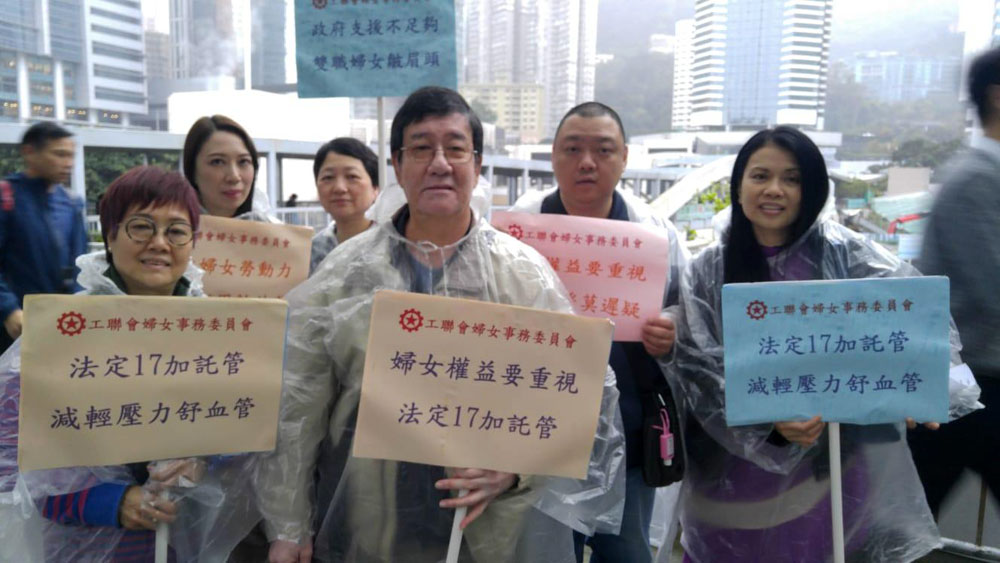 工聯會婦女事務委員會
政府支援不足夠
雙職婦女皺眉頭
工聯會婦女事務委員會
婦女勞動力
工聯會婦女事務委員會
權益要重視
莫遲疑
工聯會婦女事務委員會
法定17加託管
減輕壓力舒血管
工聯會婦女事務委員會
婦女權益要重視
法定17加託管
工聯會婦女事務委員會
法定17加託管
減輕壓力舒血管